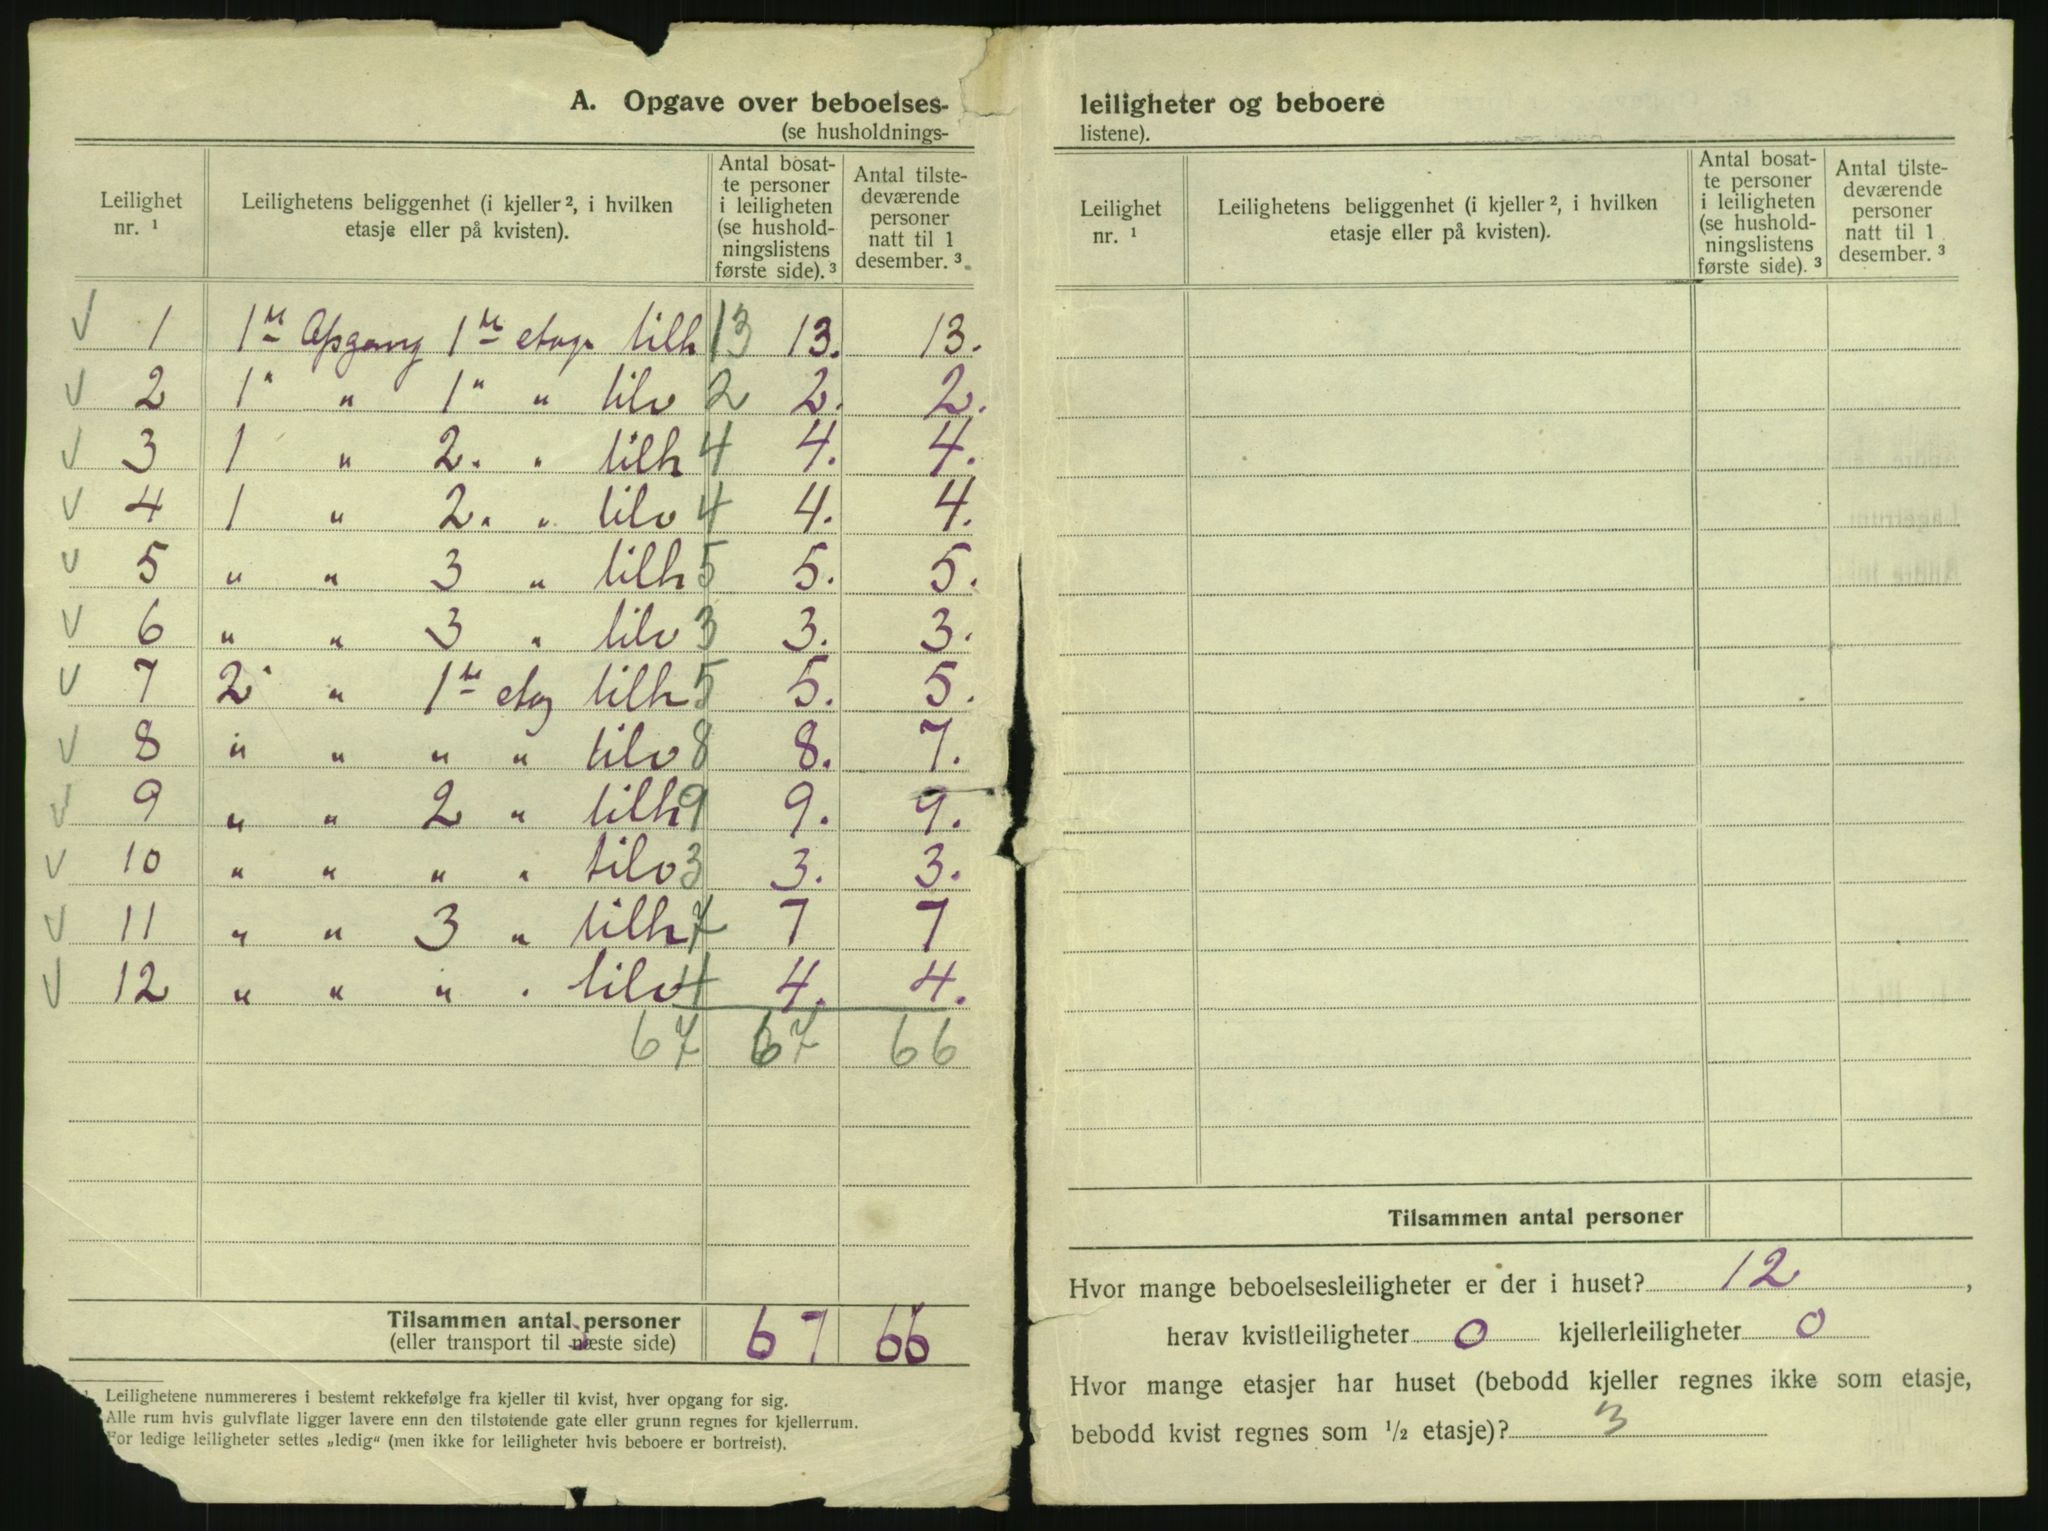 A. Opgave over beboelses-
(se husholdnings-
Leilighet nr. ¹
Leilighetens beliggenhet (i kjeller ², i hvilken etasje eller på kvisten).
Antal bosat-
te personer
i leiligheten
(se hushold-
ningslistens
første side). ³
Antal tilste-
deværende
personer
natt til 1
desember. ³
√ 1 1ste Opgang 1ste etage tilh 13 13. 13.
√ 2 1" " 1" " tilv 2 2. 2.
√ 3 1 " 2. " tilh 4 4. 4.
√ 4 1 " 2. " tilv 4 4. 4.
√ 5 " " 3 " tilh 5 5. 5.
√ 6 " " 3 " tilv 3 3. 3.
√ 7 2" " 1ste etag tilh 5 5. 5.
√ 8 " " " " tilv 8 8. 7.
√ 9 " " 2 " tilh 9 9. 9.
√ 10 " " " " tilv 3 3. 3.
√ 11 " " 3 " tilh 7 7 7
√ 12 " " " " tilv 4 4. 4.
67 67 66
Tilsammen antal personer 67 66
(eller transport til næste side)
Leilighetene nummereres i bestemt rekkefølge fra kjeller til kvist, hver opgang for sig.
Alle rum hvis gulvflate ligger lavere enn den tilstøtende gate eller grunn regnes for kjellerrum.
For ledige leiligheter settes „ledig" (men ikke for leiligheter hvis beboere er bortreist).
leiligheter og beboere
listene).
Leilighet nr. ¹
Leilighetens beliggenhet (i kjeller ², i hvilken etasje eller på kvisten).
Antal bosat-
te personer
i leiligheten
(se hushold-
ningslistens
første side). ³
Antal tilste-
deværende
personer
natt til 1
desember. ³
Tilsammen antal personer
Hvor mange beboelsesleiligheter er der i huset? 12 ,
herav kvistleiligheter 0 kjellerleiligheter 0
Hvor mange etasjer har huset (bebodd kjeller regnes ikke som etasje,
bebodd kvist regnes som ½ etasje)? 3